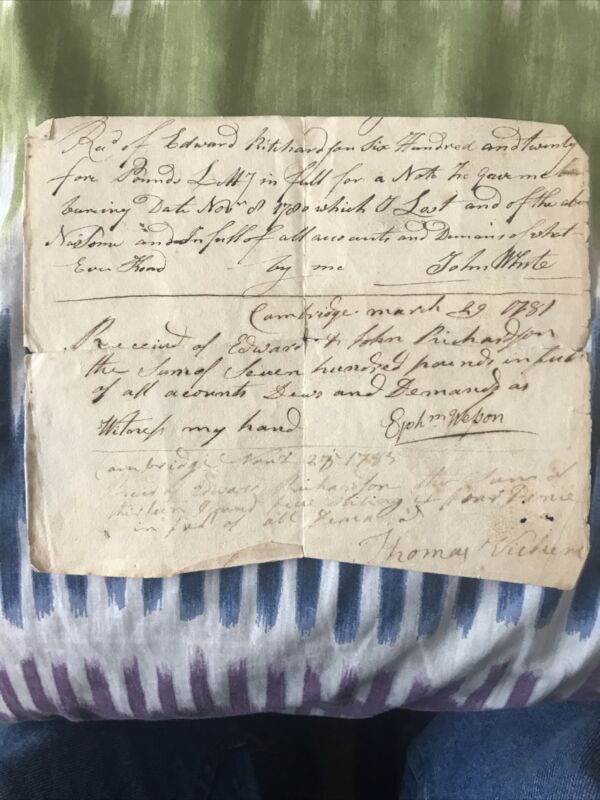 Recd of Edward Richardson Six Hundred and twenty
fore Pounds L My in full for a Note he gave me
bearing Date Novr 8 1780 which I Lost and of the above
and In full of all accounts and Demans of what
Ever Kind by me John White
Cambridge march 29 1781
Received of Edward & John Richardson
the Sum of Seven hundred pounds in full
of all acounts Dews and Demands as
Witness my hand Ephm Weson
Cambridge Novr 25 1783
Recd of Edward Richardson the Sum of
thirteen Pound five Shiling & four Penie
in full of all Demands
Thomas